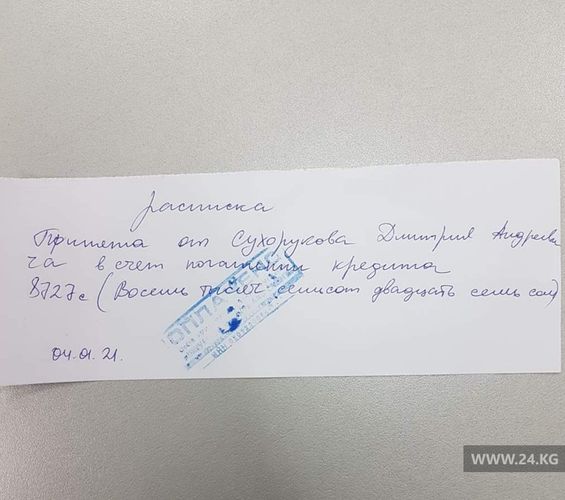 расписка
Принята от Сухорукова Дмитрия Андрееви
ча в счет погашении кредита
8727с (Восемь тысяч семьсот двадцать семь сом)
ОПЛАЧЕНО
04.01.21.
WWW.24.KG